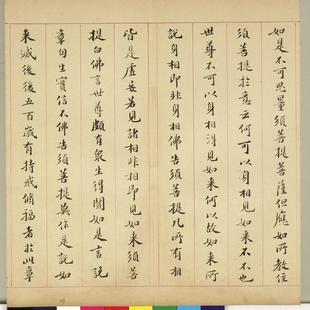 如是不可思量須菩提菩薩但應如所教住
須菩提於意云何可以身相見如來不不也
世尊不可以身相得見如來何以故如來所
說身相即非身相佛告須菩提凡所有相
皆是虛妄若見諸相非相即見如來須菩
提白佛言世尊頗有衆生得聞如是言說
章句生實信不佛告須菩提莫作是說如
来滅後後五百歲有持戒脩福者於此章